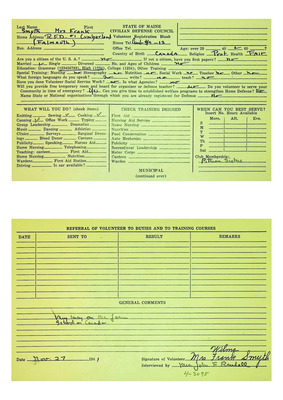 Last Name First
Smyth Mrs Frank
STATE OF MAINE
CIVILIAN DEFENSE COUNCIL
Volunteer Registration Blank
Home Address R.F.D. Cumberland
(Falmouth)
Home Tel.
Bus. Address
Office Tel.
Age: over 20
Country of Birth Canada Religion Prot Health Fair
Are you a citizen of the U. S. A.? no If not a citizen, have you first papers? no
Married Single Divorced No. and Ages of Children no
Education: Grammar (Elementary), High (1234), College (1234), Other Training
Special Training: Nursing no Stenography no Nutrition no Social Work no Teacher no Other
What foreign languages do you speak? no write? no read? no
Have you done Volunteer Social Service Work? no In what field?
Will you provide five temporary room and board for organizer or defense teacher? no Do you volunteer to serve your
Community in time of emergency? yes Can you give time to established welfare programs to strengthen Home Defense? no
Name State or National organizations through which you are already registered for Defense
WHAT WILL YOU DO? (check items)
Knitting Sewing ✓ Cooking ✓
Canning ✓ Office Work Typing
Group Leadership Dramatics
Music Dancing Athletics
Clinics Surveys Surgical Dress-
ings Blood Donor Canvass
Publicity Speaking Nurses Aid
Home Nursing Telephoning
Teaching First Aid
Home Nursing Nutrition
Wardens First Aid Station
Driving Is car available?
CHECK TRAINING DESIRED
First Aid
Nursing Aid Service
Home Nursing
Nutrition
Food Conservation
Auto Mechanics
Publicity
Recreational Leadership
Motor Corps
Canteen
Wardens
WHEN CAN YOU BEST SERVE?
Insert No. Hours Available
Morn. Aft. Eve.
S
M
T
W
Th
F
Sat
Club Membership:
Pythian Sisters
MUNICIPAL
(continued over)
REFERRAL OF VOLUNTEER TO DUTIES AND TO TRAINING COURSES
DATE SENT TO RESULT REMARKS
GENERAL COMMENTS
Very busy on the farm
School in Canada
Date Nov. 27 1941
Wilma
Signature of Volunteer Mrs Frank Smyth
Interviewed by Mrs John F. Randall
4-3095